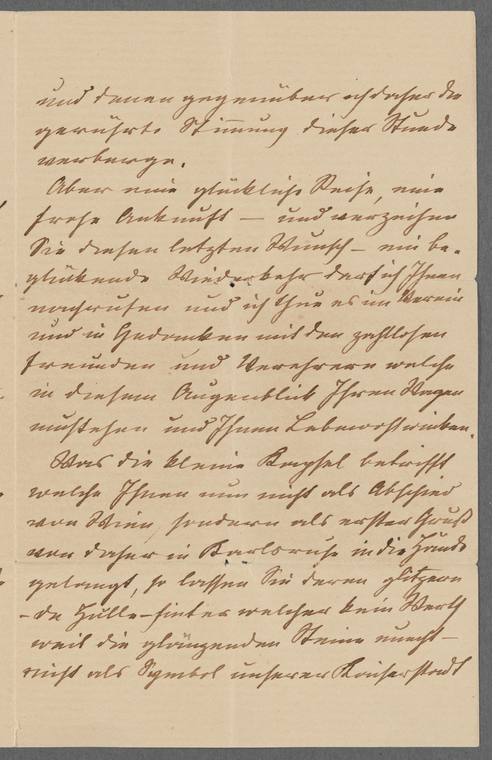 und denen gegenüber ich daher die
gerührte Stimmung dieser Stunde
verberge.
Aber eine glückliche Reise, eine
frohe Ankunft – und verzeihen
Sie diesen letzten Wunsch – ein be-
glückende Wiederkehr darf ich Ihnen
nachrufen und ich thue es im Verein
und in Gedanken mit den zahllosen
Freunden und Verehrern welche
in diesem Augenblick Ihren Wagen
umstehen und Ihnen Lebewohl winken.
Was die kleine Kapsel betrifft
welche Ihnen nun nicht als Abschied
von Wien, sondern als erster Gruß
von daher in Karlsruhe in die Hände
gelangt, so lassen Sie deren glitzern
-de Hülle – hinter welcher kein Werth
weil die glänzenden Steine unecht –
nicht als Symbol unserer Kaiserstadt